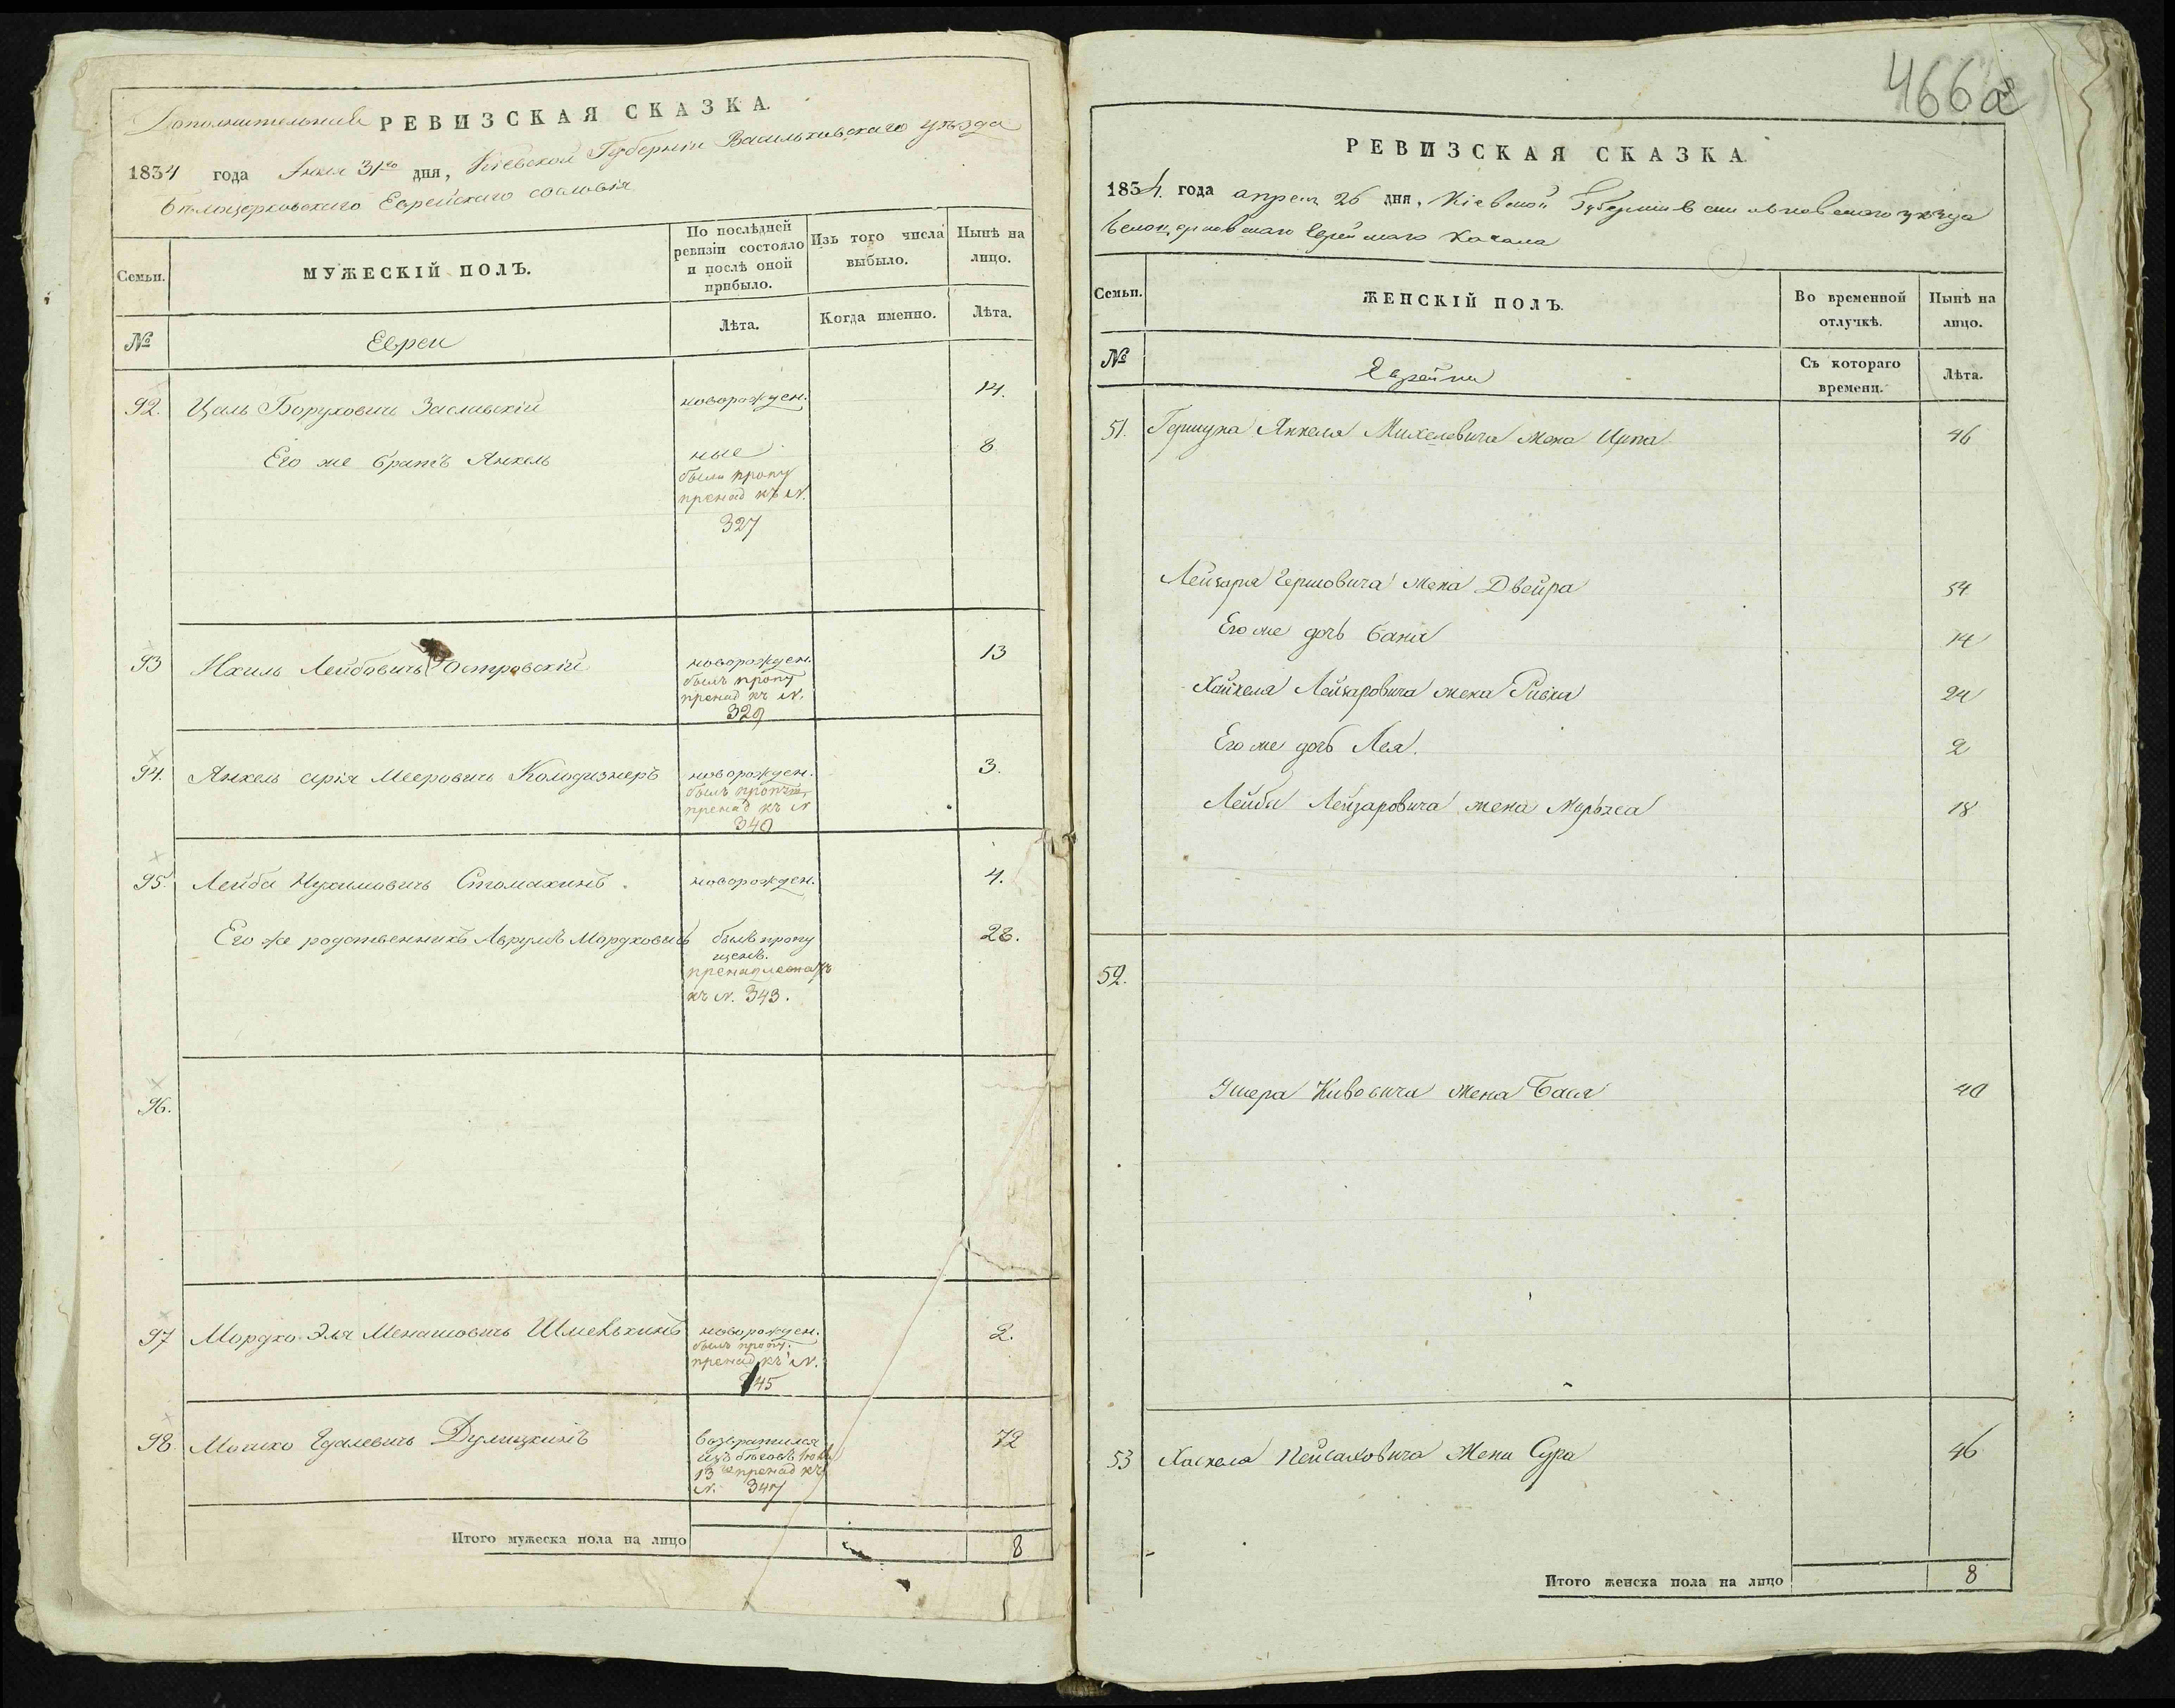 Дополнительная РЕВИЗСКАЯ СКАЗКА.
1834 года Июля 31го дня, Кіевской Губерніи Васильковскаго уѣзда
Бѣлоцерковскаго Еврейскаго сословія
Семьи.
МУЖЕСКІЙ ПОЛЪ.
По послѣдней ревизіи состояло и послѣ оной прибыло.
Изъ того числа выбыло.
Нынѣ на лицо.
№
Евреи
Лѣта.
Когда именно.
Лѣта.
92. Цаль Боруховичь Заславскій новорожден. 14.
Его же братъ Янкель ные 8
были пропу
пренад къ N.
327
93 Ихиль Лейбовичь Островскій новорожден. 13
былъ пропу
пренад къ N.
329
94. Янкель Мееровичь Колодизнеръ новорожден. 3.
былъ
пренад къ N
340
95. Лейба Нухимовичь Стомахинъ. новорожден. 4.
Его же родственникъ Аврумъ Мордховичь былъ пропу 28.
щенъ.
къ N. 343.
96.
97 Мордхо Эля Менашовичь новорожден. 2.
былъ пропу.
пренад къ N.
345
98. Мошко Едалевичь Дулицкий возвратился 72
изъ бѣговъ
13 пренад къ
N. 347
Итого мужеска пола на лицо 8
466а
РЕВИЗСКАЯ СКАЗКА.
1834. года апреля 26 дня, Кіевской Губерніи Васильковскаго уѣзда
Белоцерковскаго Еврейскаго Кагала
Семьи.
ЖЕНСКІЙ ПОЛЪ.
Во временной отлучкѣ.
Нынѣ на лицо.
№
Еврейки
Съ котораго времени.
Лѣта.
51. Гершука Янкеля Михелевича жена Ципа 46
Лейзаря Гершовича жена Двейра 54
Его же дочь Баня 14
Хайкеля Лейзаровича жена Ривка 24
Его же дочь Лея. 2
Лейби Лейзаровича жена 18
52.
Ушера Кивовича жена Бася 40
53 Хаскеля Пейсаховича Жена Сура 46
Итого женска пола на лицо 8